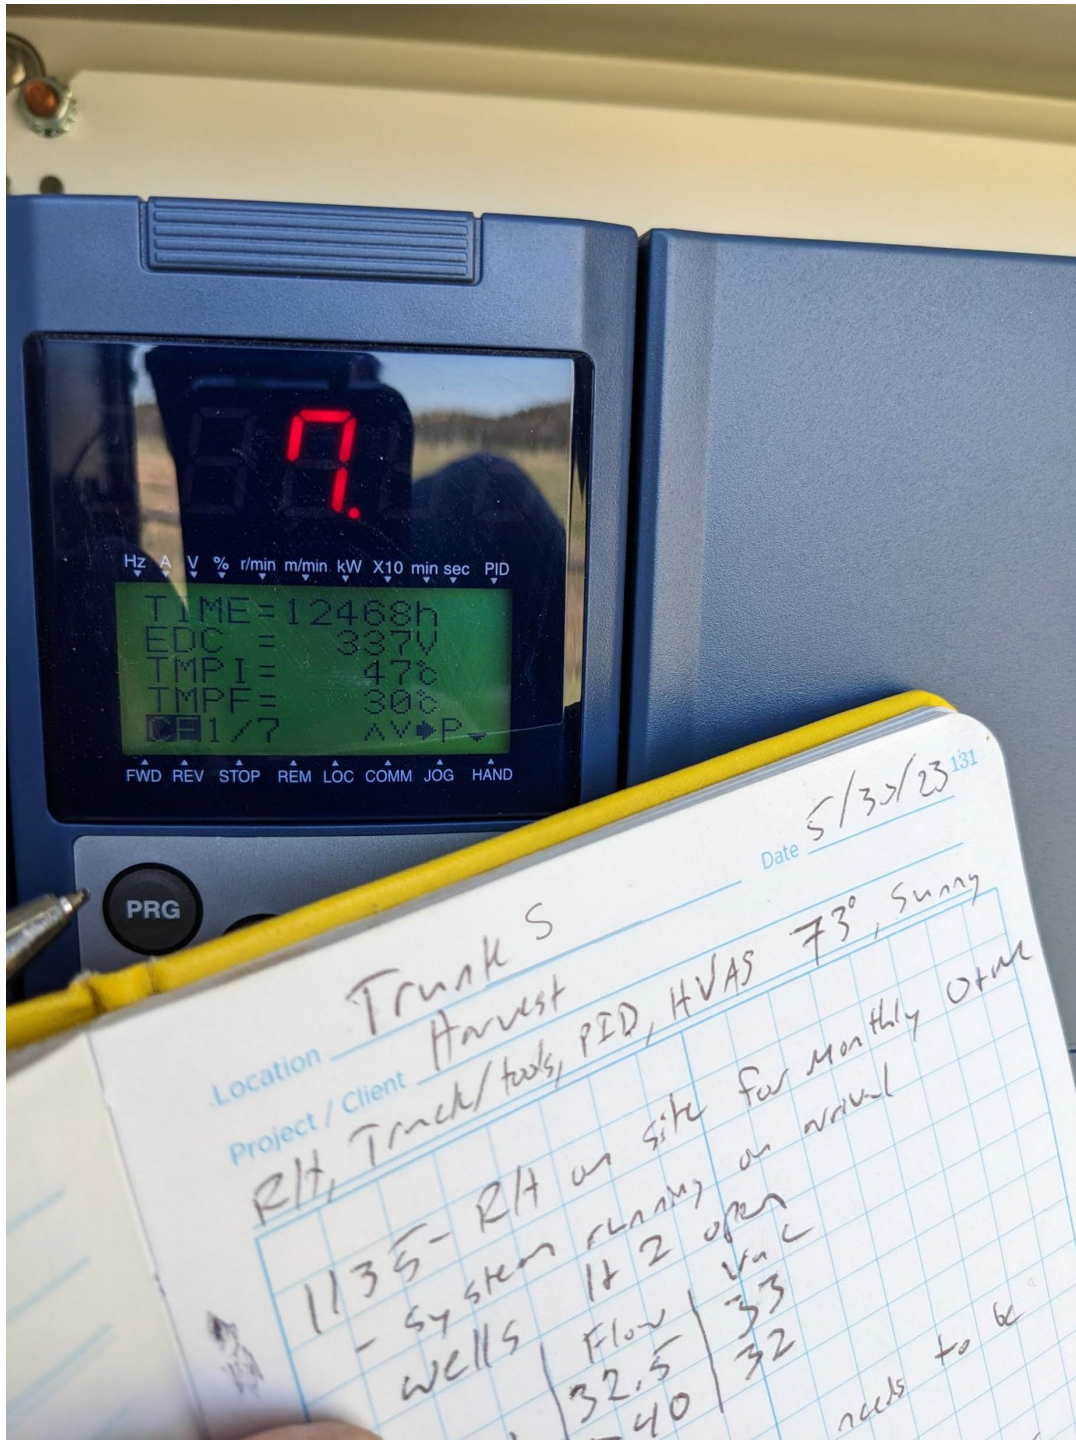 7.
Hz A V % r/min m/min kW X10 min sec PID
TIME=12468h
EDC = 337V
TMPI= 47℃
TMPF= 30℃
1/7 ∧∨➡P
FWD REV STOP REM LOC COMM JOG HAND
PRG
131
Date 5/30/23
Location Trunk S
Project / Client Harvest
R/H, Truck/tools, PID, HVAS 73°, Sunny
1135- R/H on site for Monthly O+M
- System running on arrival
wells 1+2 open
Flow | Vac
32.5 | 33
40 | 32
needs to be